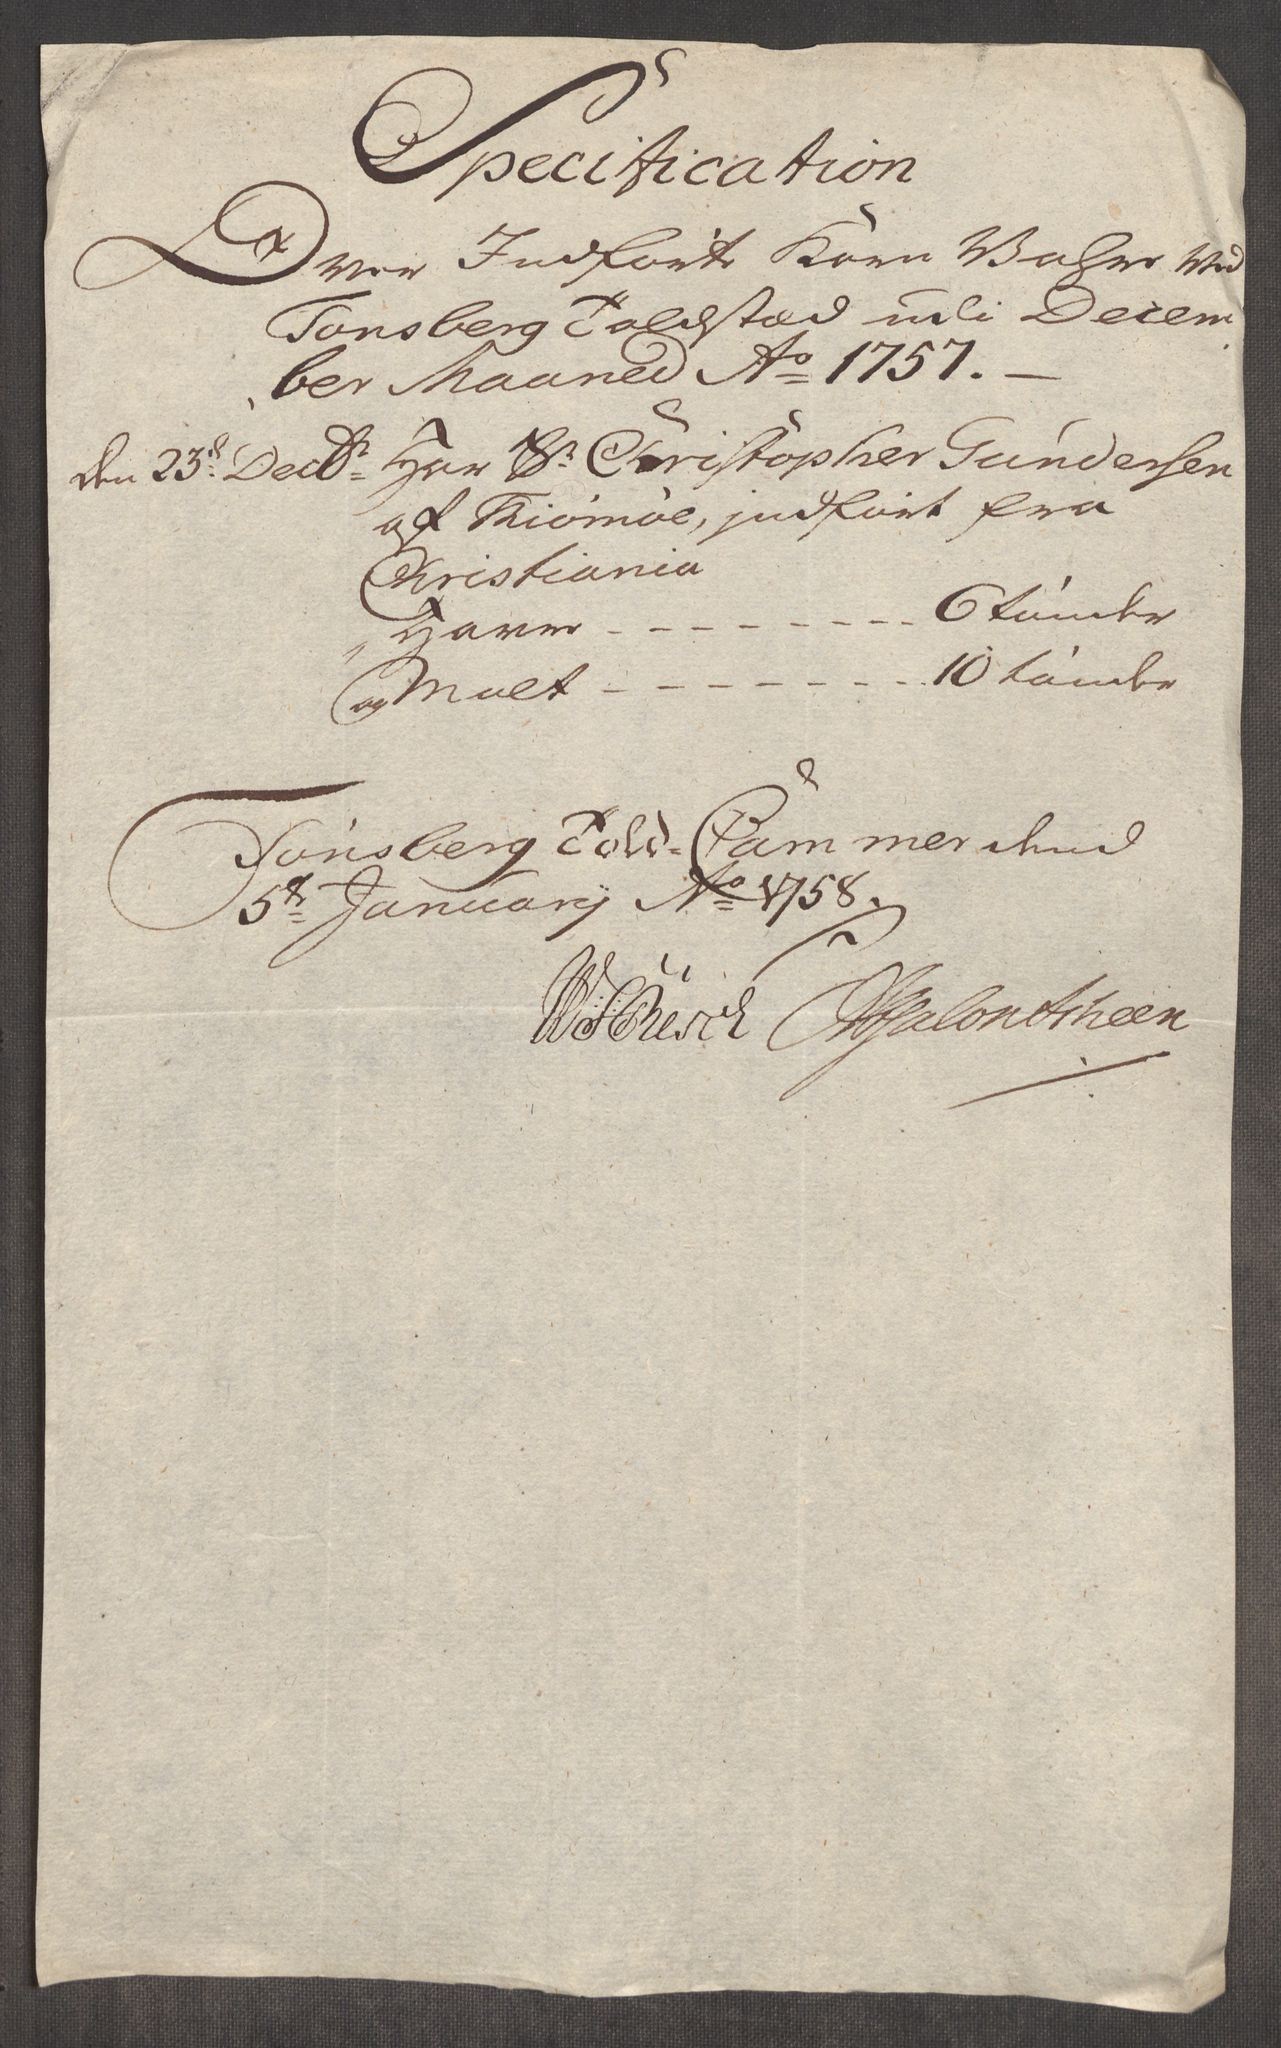 Specification
Over Indførte Korn Vahre Ved
Tønsberg Toldstæd udi Decem
ber Maaned Ao 1757. –
den 23d Decbr Har Sr Christopher Gundersen
af Thiömöe, jndført fra
Christiania
Haver - - - - - - - - 6 tønder
og Malt - - - - - - - - 10 tønder
Tönsberg Told-Cammer dend
5te January Ao 1758.